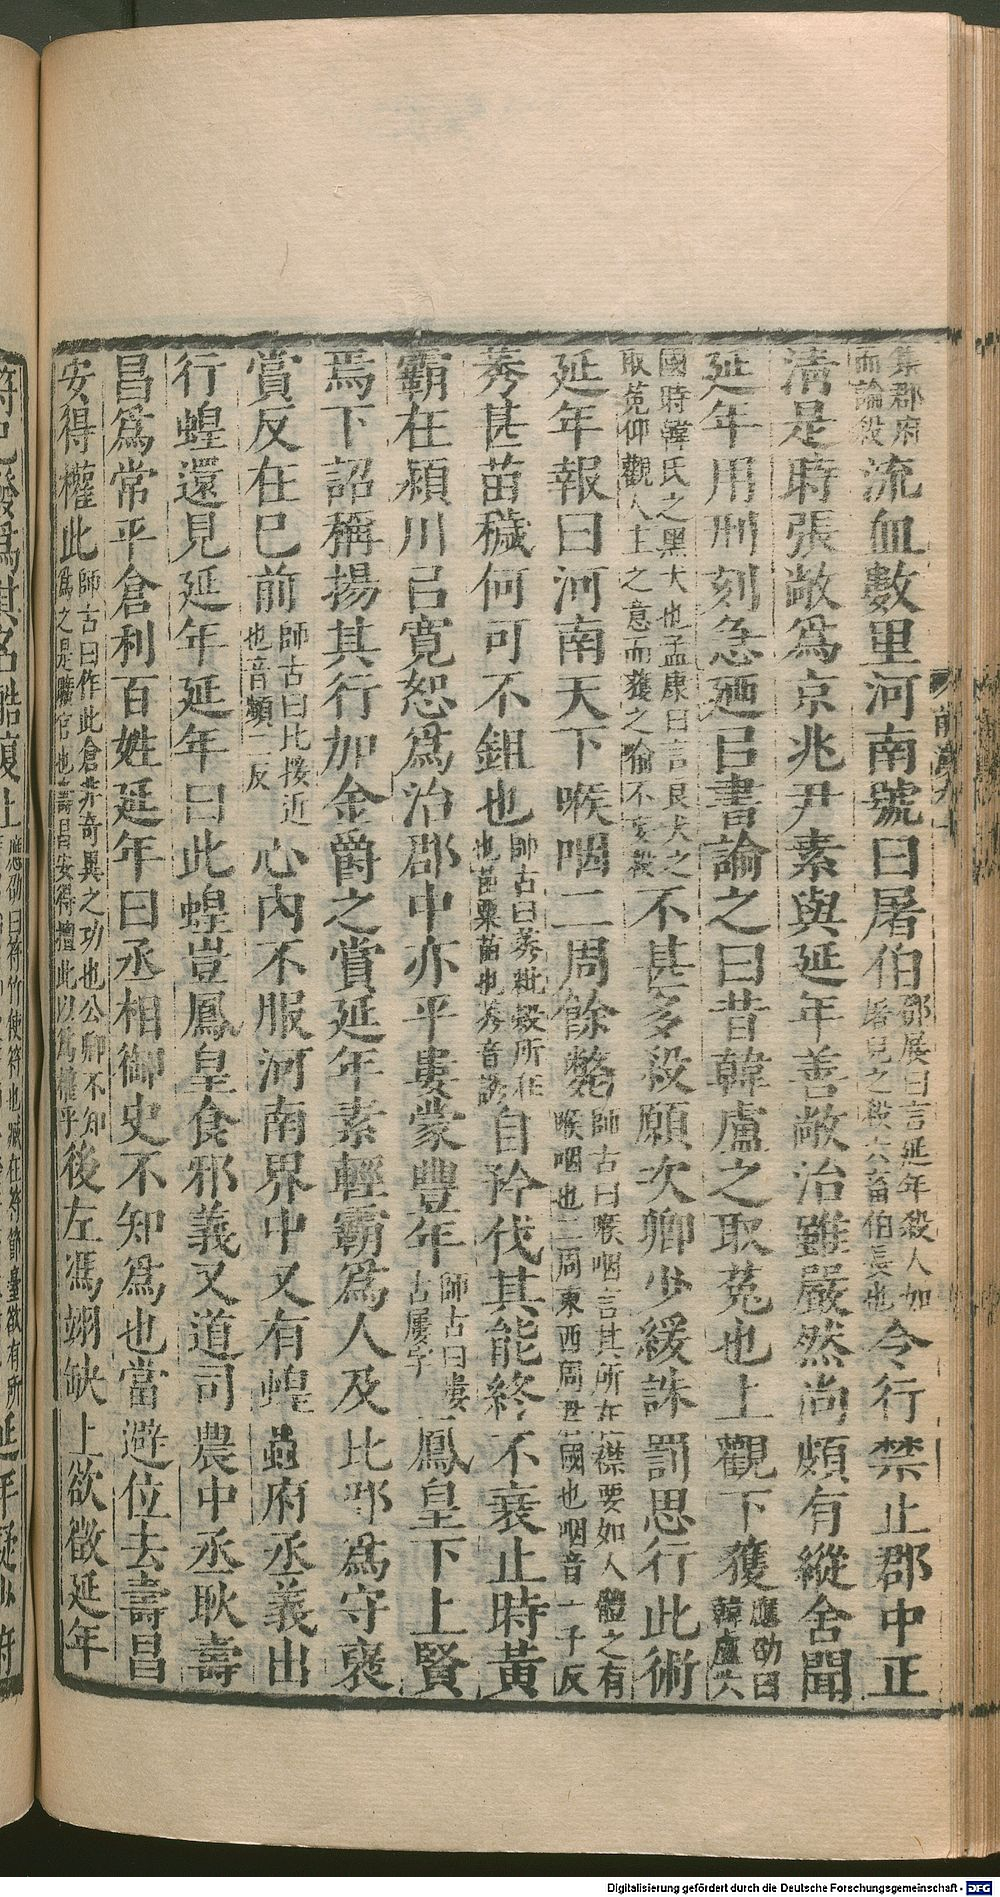 集郡府而論殺流血數里河南號曰屠伯鄧展曰言延年殺人如屠兒之殺六畜伯長也令行禁止郡中正
清是時張敞爲京兆尹素與延年善敞治雖嚴然尚頗有縱舍聞
延年用刑刻急廼㠯書諭之曰昔韓盧之取菟也上觀下獲應劭曰韓盧六
國時韓氏之黑犬也孟康曰言良犬之取菟仰觀人主之意而獲之喻不妄殺不甚多殺願次卿少緩誅罰思行此術
延年報曰河南天下喉咽二周餘斃師古曰喉咽言其所在襟要如人體之有喉咽也二周東西周君國也咽音一千反
莠甚苗穢何可不鉏也師古曰莠粃穀所在也苗粟苗也莠音誘自矜伐其能終不衰止時黃
霸在潁川㠯寬恕爲治郡中亦平婁蒙豐年師古曰婁古屢字鳳皇下上賢
焉下詔稱揚其行加金爵之賞延年素輕霸爲人及比郡爲守襃
賞反在己前師古曰比接近也音頻二反心內不服河南界中又有蝗蟲府丞義出
行蝗還見延年延年曰此蝗豈鳳皇食邪義又道司農中丞耿壽
昌爲常平倉利百姓延年曰丞相御史不知爲也當避位去壽昌
安得權此師古曰作此倉非奇異之功也公卿不知爲之是曠官也壽昌安得擅此以爲權乎後左馮翊缺上欲徵延年